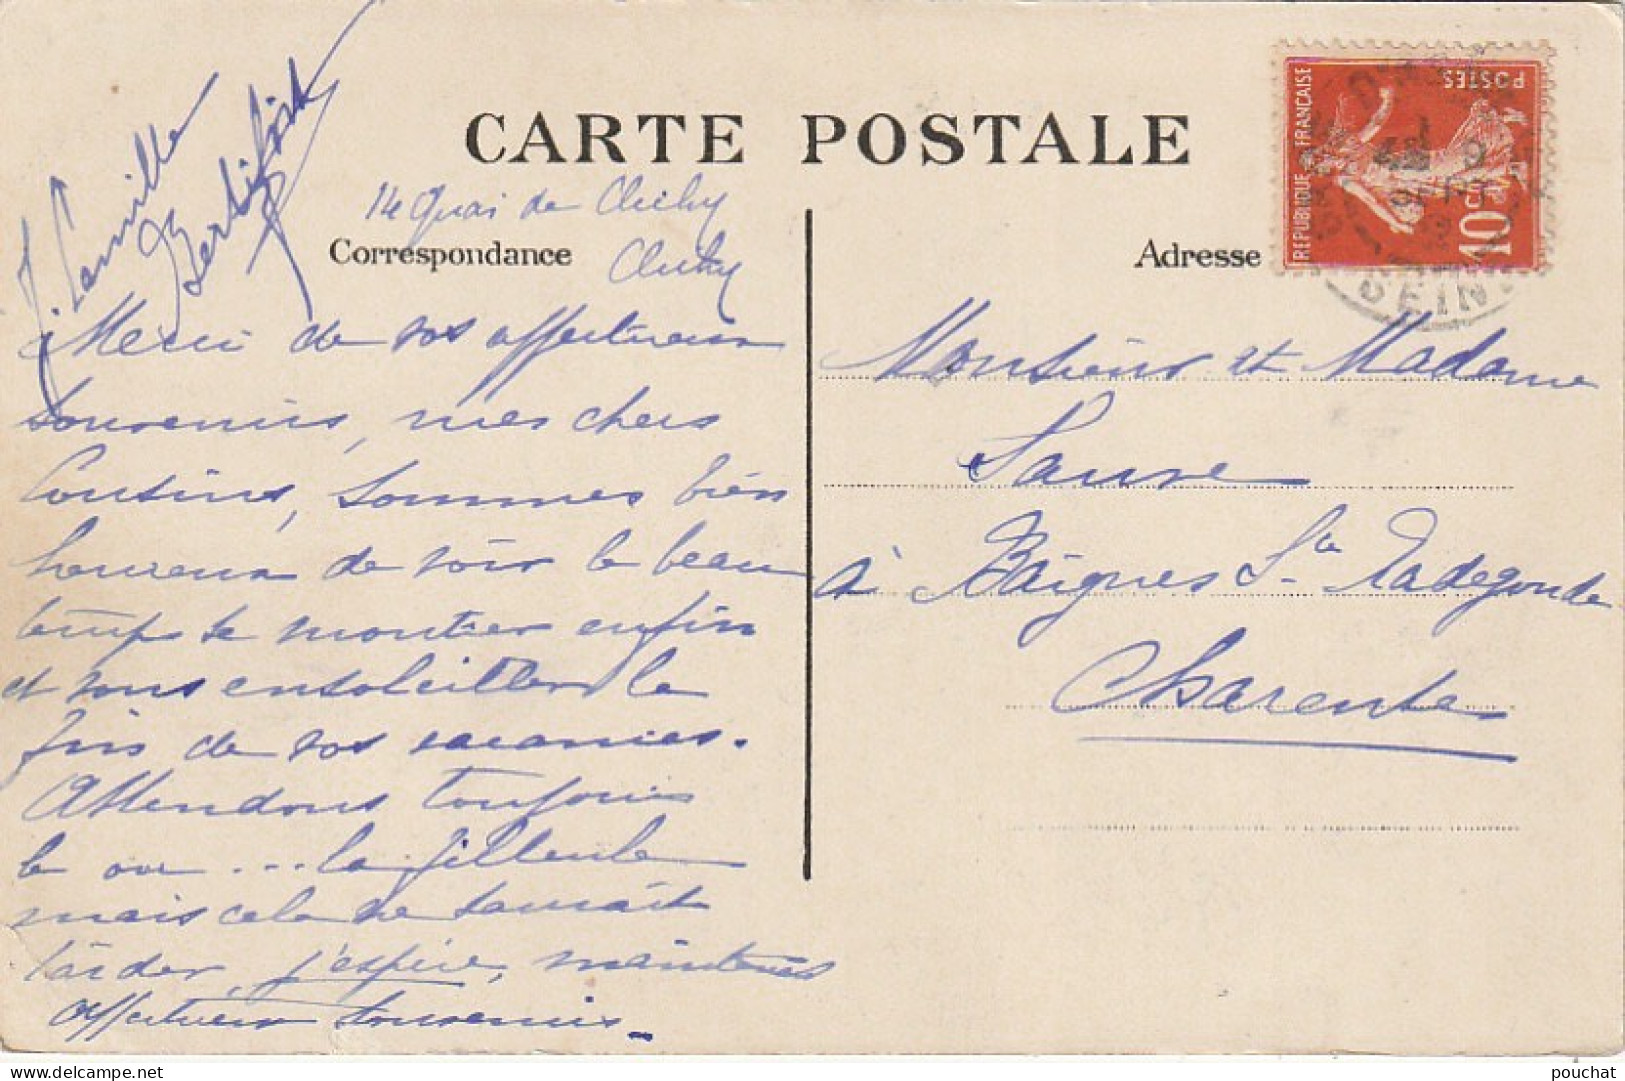 CARTE POSTALE
14 Quai de Clichy
Clichy
Correspondance
Adresse
REPUBLIQUE FRANÇAISE
POSTES
10 c
Camille
Merci de vos affectueux
souvenirs, mes chers
Cousins, sommes bien
heureux de voir le beau
temps se montrer enfin
et vous ensoleiller la
fin de vos vacances.
Attendons toujours
le ou ... la filleule
mais cela ne saurait
tarder, j'espère, maintenus
affectueux souvenirs.
Monsieur et Madame
Sauve
à Baignes Ste Radegonde
Charente
SEINE
pouchat